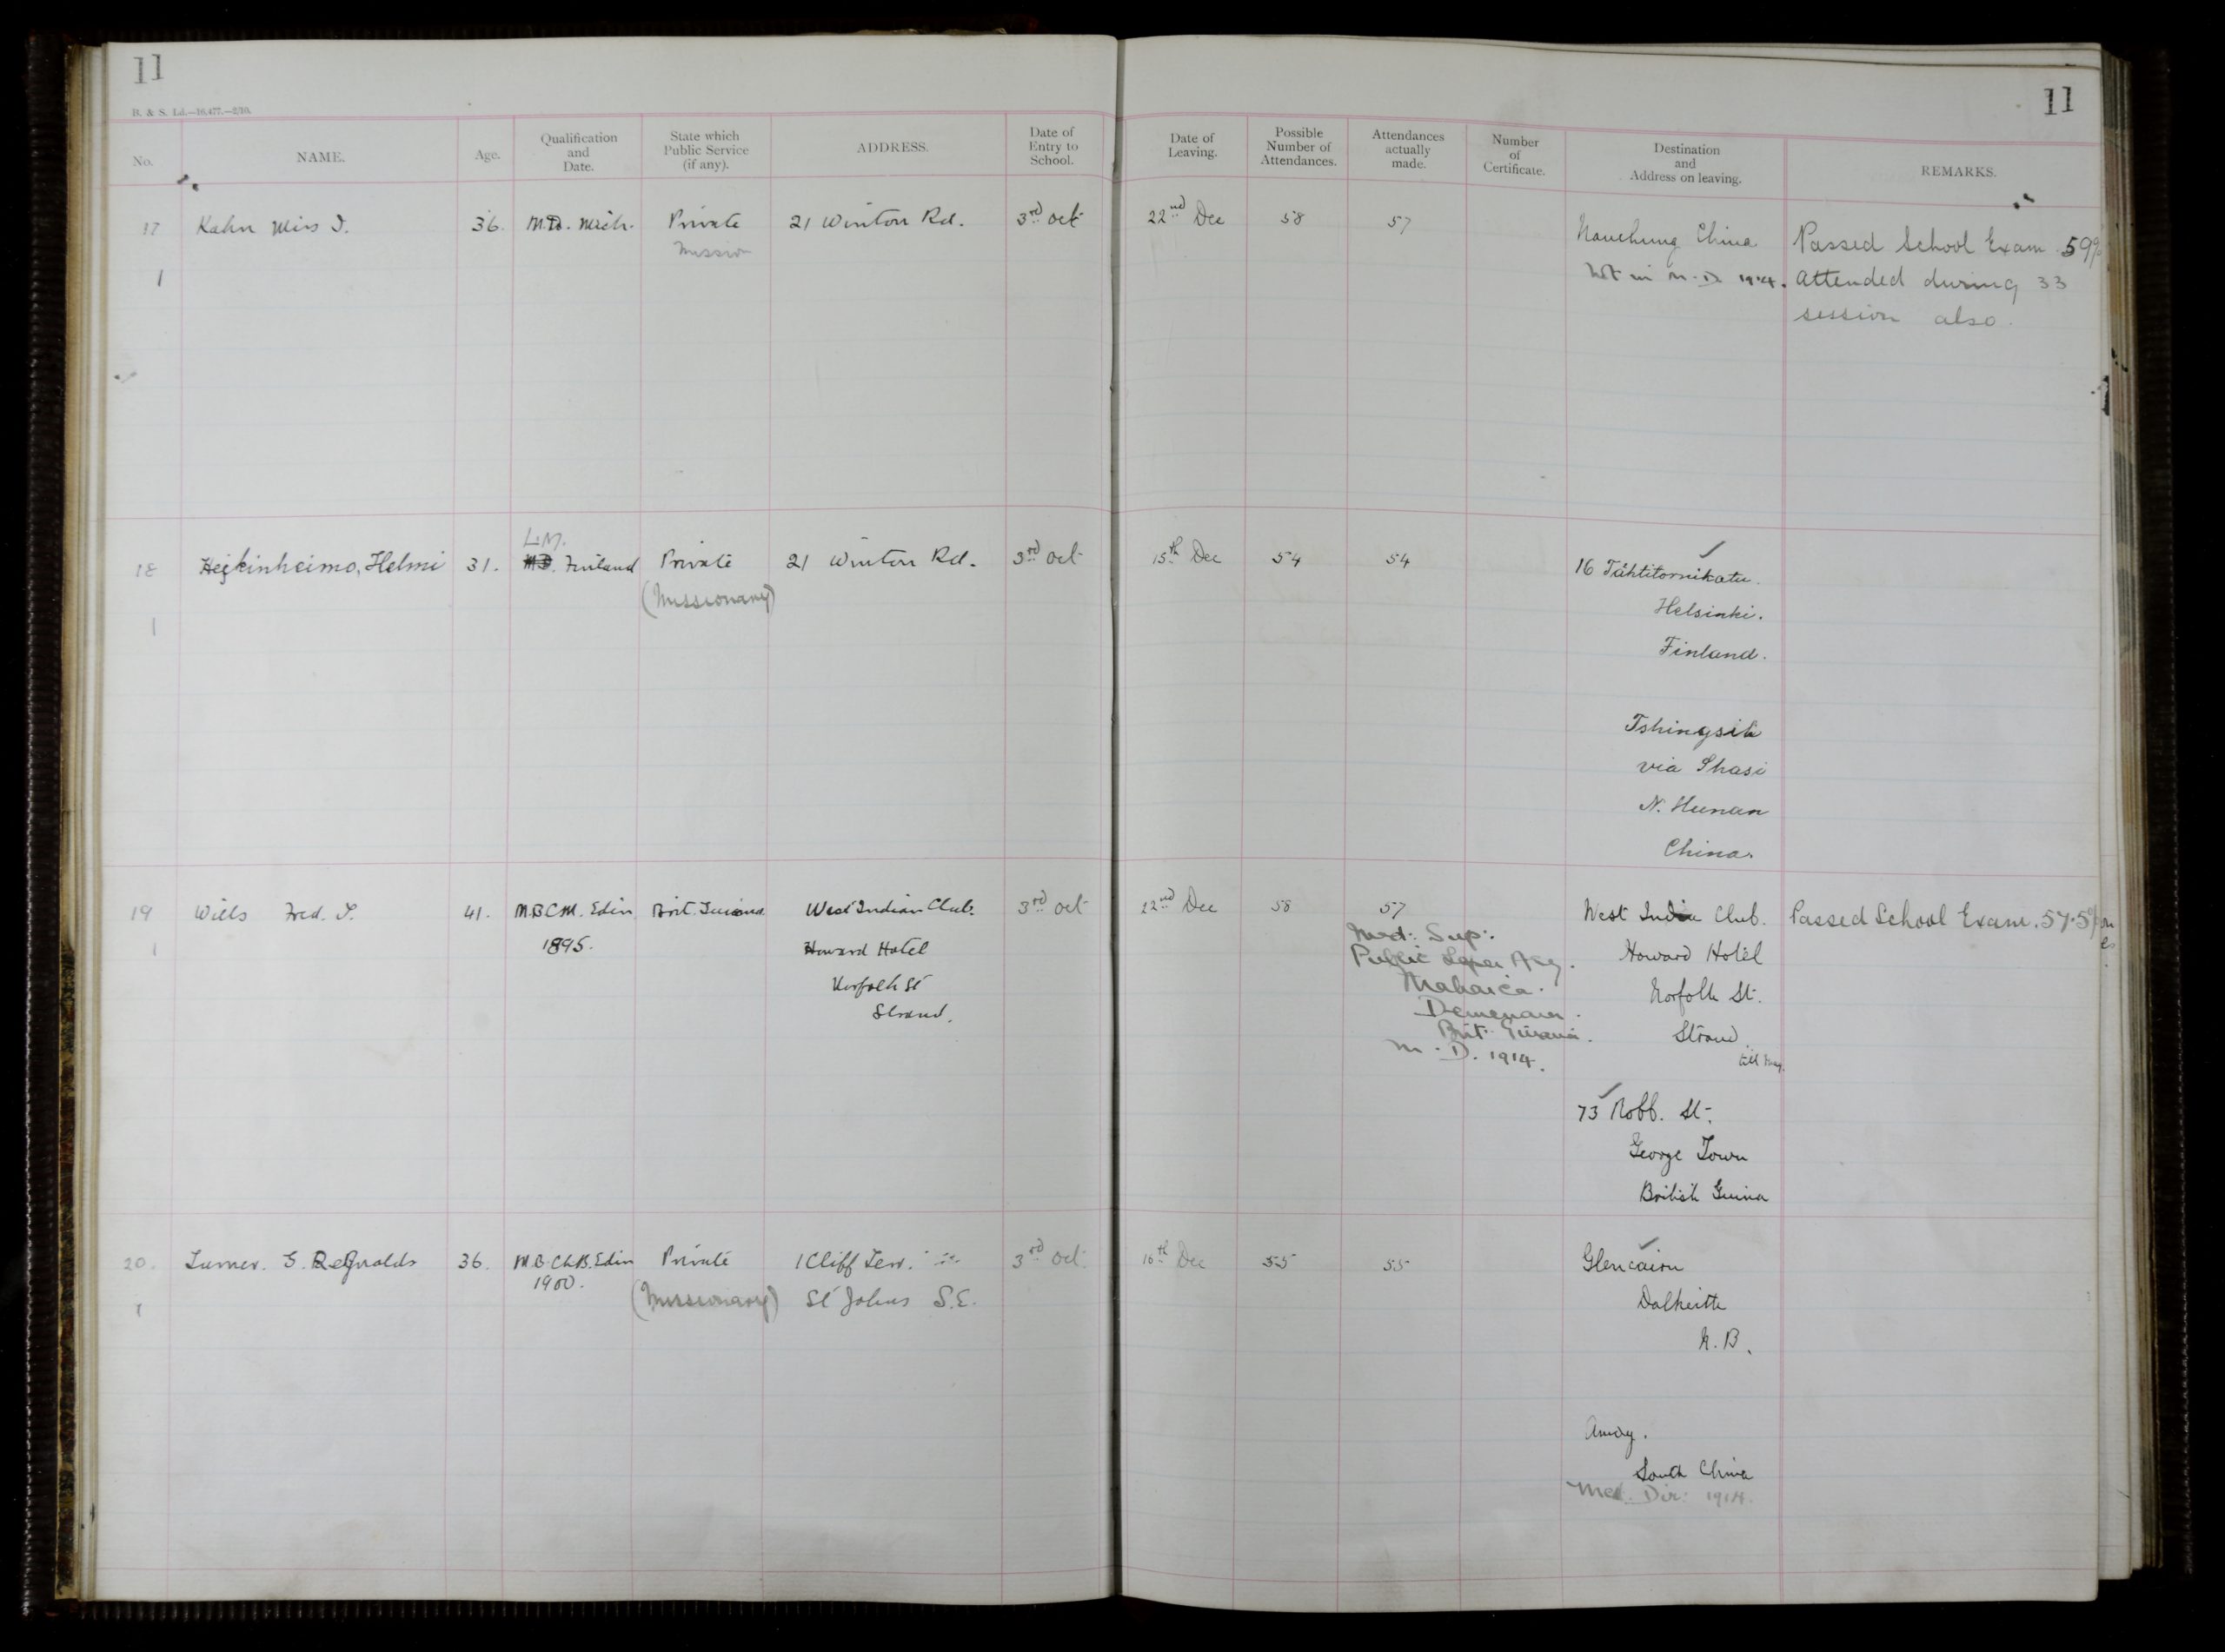 11
11
B. & S. Ld.—16,477.—2/10.
No.
NAME.
Age.
Qualification
and
Date.
State which
Public Service
(if any).
ADDRESS.
Date of
Entry to
School.
Date of
Leaving.
Possible
Number of
Attendances.
Attendances
actually
made.
Number
of
Certificate.
Destination
and
Address on leaving.
REMARKS.
17
Kahn Miss I.
36.
M.D. Mich.
Private
Mission
21 Winton Rd.
3rd Oct
22nd Dec
58
57
Nanchung China
Not in M.D. 1914.
Passed School Exam 59%
Attended during 33
session also.
1
18
Heikinheimo, Helmi
31.
L.M.
M.D. Finland
Private
(Missionary)
21 Winton Rd.
3rd Oct
15th Dec
54
54
16 Tähtitornikatu.
Helsinki.
Finland.
Tshingsih
via Shasi
N. Hunan
China.
1
19
Wills Fred. I.
41.
M.B.C.M. Edin
1895.
Brit. Guiana
West Indian Club.
Howard Hotel
Norfolk St
Strand.
3rd Oct
22nd Dec
58
57
Med: Sup:
Public Leper Asy.
Mahaica.
Demerara.
Brit: Guiana.
M.D. 1914.
West India Club.
Howard Hotel
Norfolk St.
Strand
till May.
73 Robb. St.
George Town
British Guina
Passed School Exam. 57.5%
1
20.
Turner. G. Reynolds
36.
M.B. Ch.B. Edin
1900.
Private
(Missionary)
1 Cliff Terr.
St Johns S.E.
3rd Oct.
16th Dec
55
55
Glencairn
Dalkeith
N.B.
Amoy.
South China
Med. Dir: 1914.
1